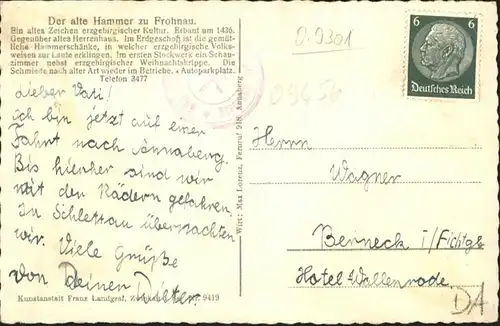 Der alte Hammer zu Frohnau.
Ein altes Zeichen erzgebirgischer Kultur. Erbaut um 1436.
Gegenüber altes Herrenhaus. Im Erdgeschoß ist die gemüt-
liche Hammerschänke, in welcher erzgebirgische Volks-
weisen zur Laute erklingen. Im ersten Stockwerk ein Schau-
zimmer nebst erzgebirgischer Weihnachtskrippe. Die
Schmiede nach alter Art wieder im Betriebe. Autoparkplatz.
Telefon 3477
Lieber Vati!
Ich bin jetzt auf einer
Fahrt nach Annaberg.
Bis hierher sind wir
mit den Rädern gefahren.
In Schlettau übernachten
wir. Viele Grüße
von Deiner Dieter.
Kunstanstalt Franz Landgraf, 9419
Wirt: Max Lorenz, Fernruf 918 Annaberg
0.9301
6 6
Deutsches Reich
Herrn
Wagner
Berneck i/Fichtglb
Hotel Wallenrode.
DA